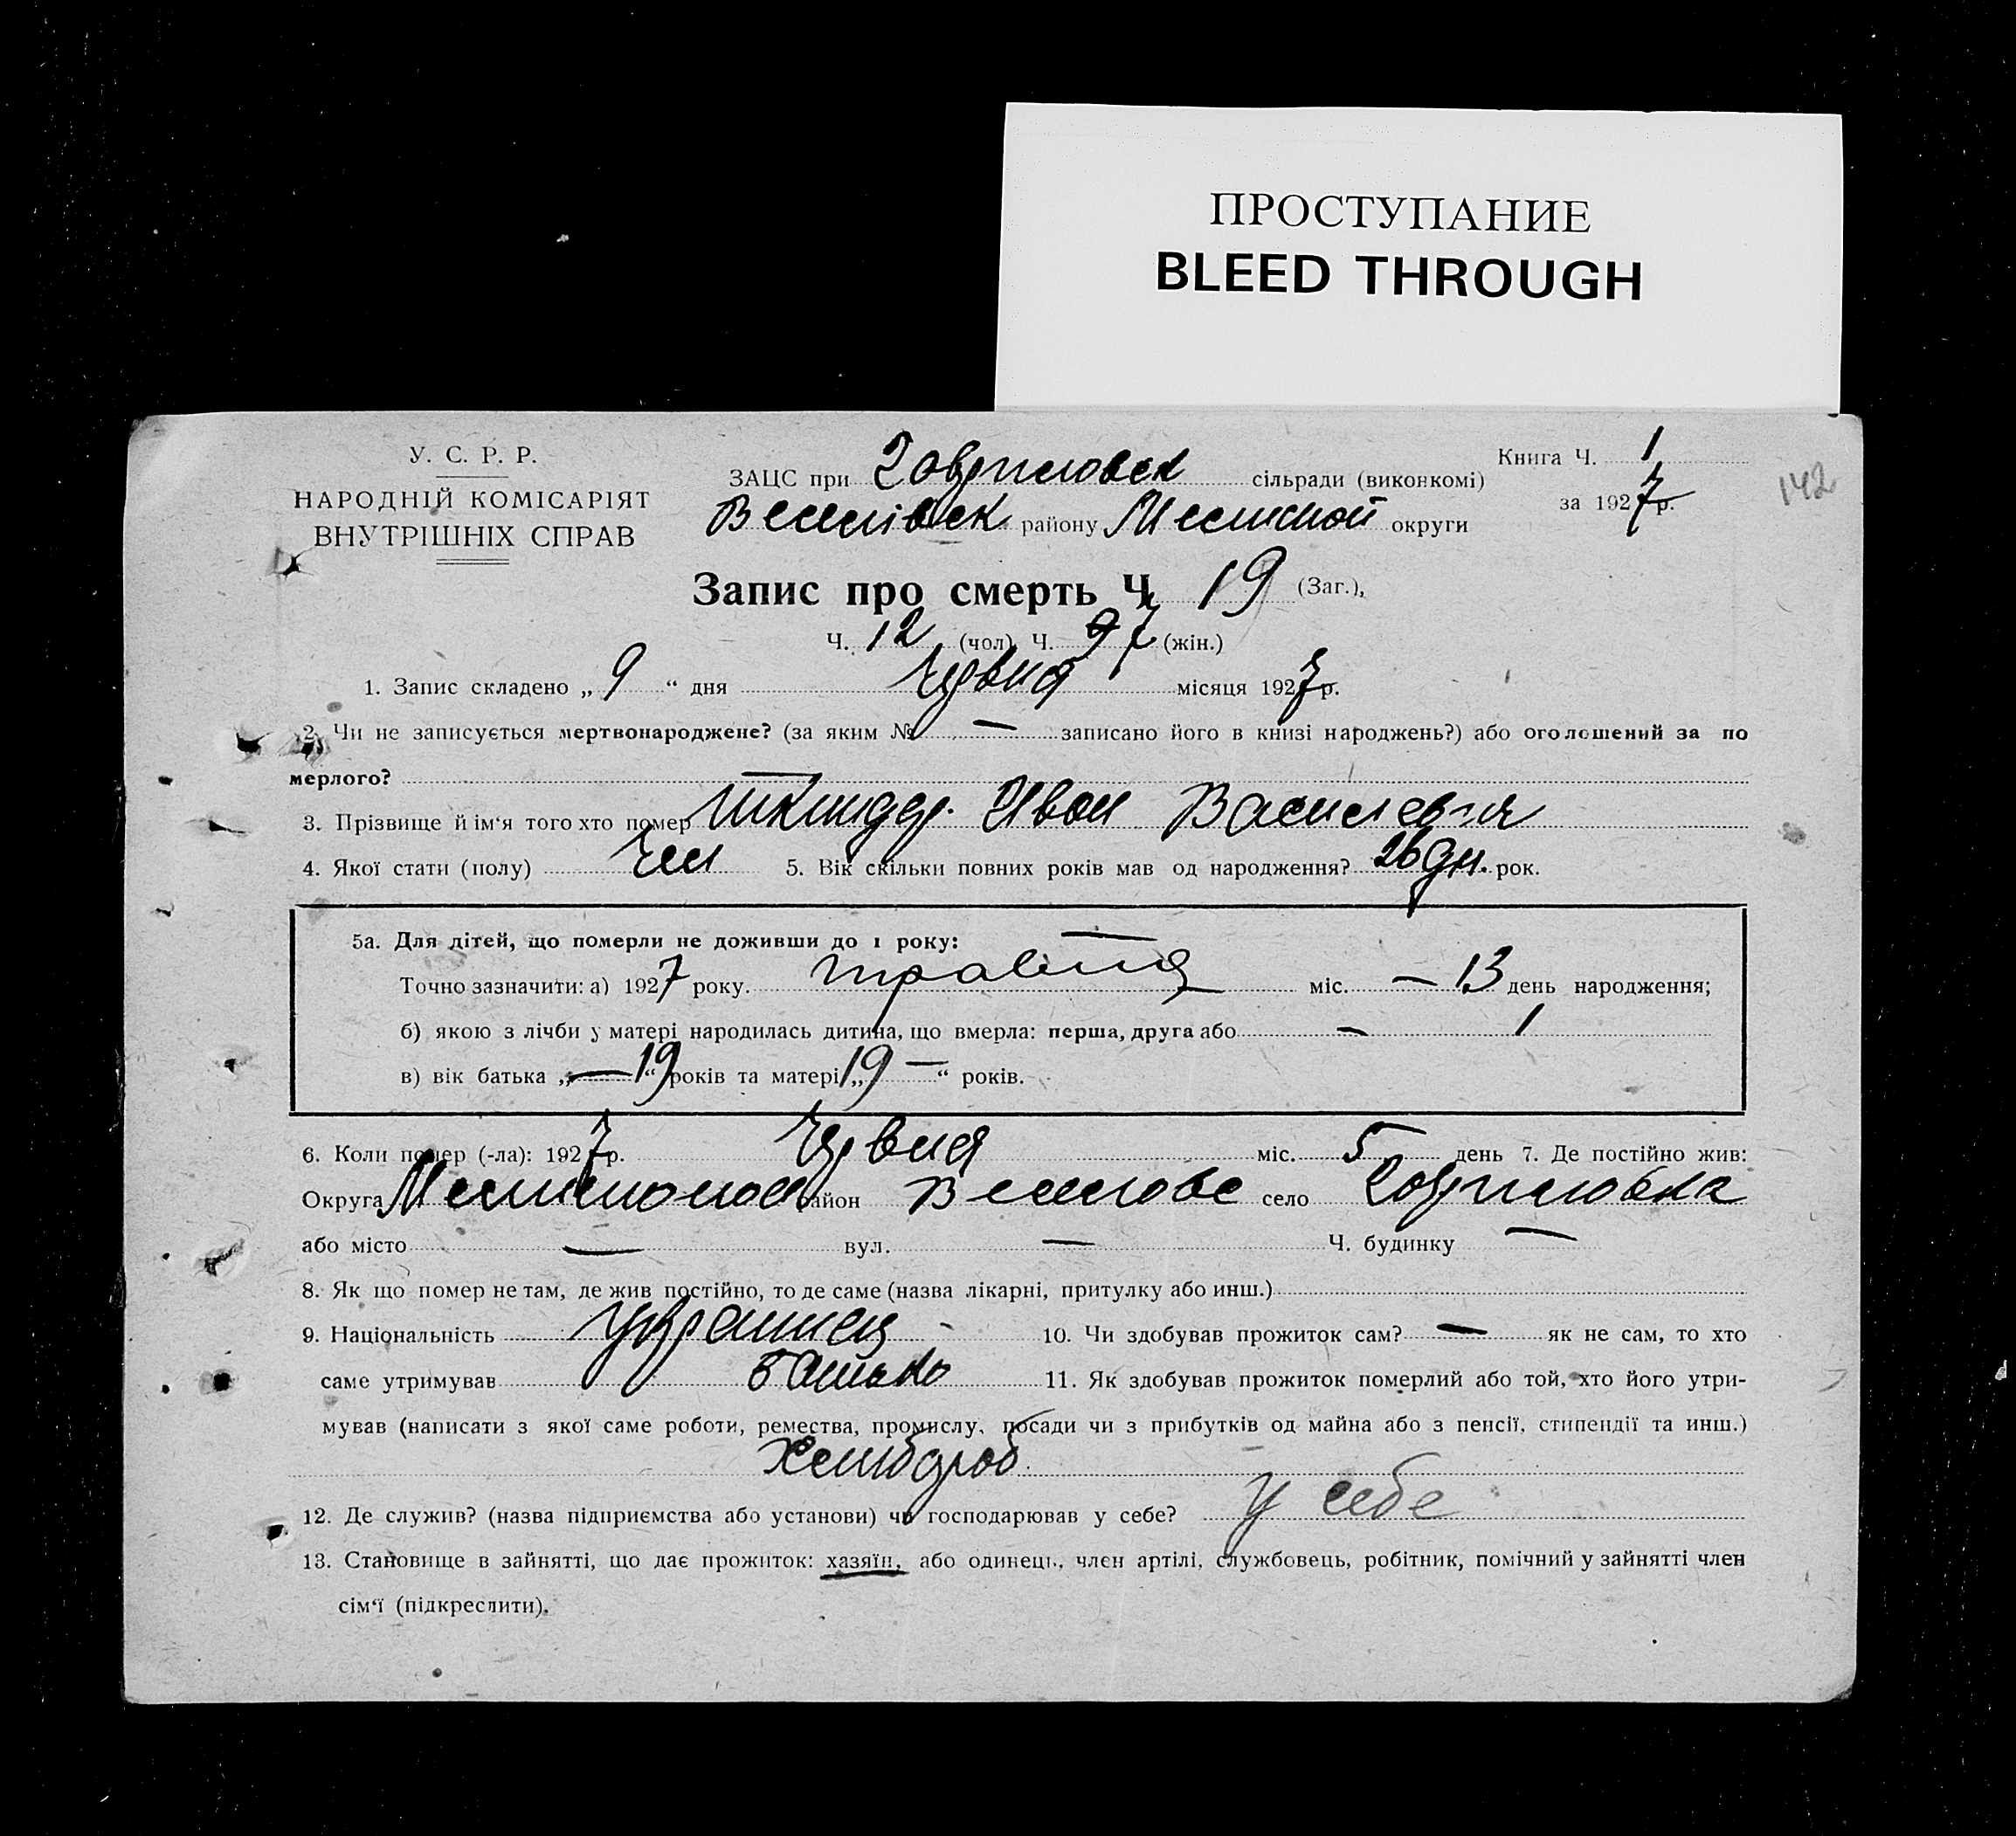 ПРОСТУПАНИЕ
BLEED THROUGH
У. С. Р. Р.
НАРОДНІЙ КОМІСАРІЯТ
ВНУТРІШНІХ СПРАВ
ЗАЦС при Гавриловск сільради (виконкомі)
району округи
Книга Ч. 1
за 1927 р.
142
Запис про смерть Ч. 19 (Заг.),
Ч. 12 (чол) Ч. 7 (жін.)
1. Запис складено „ 9 “ дня червня місяця 1927 р.
2. Чи не записується мертвонароджене? (за яким № — записано його в книзі народжень?) або оголошений за по
мерлого? —
3. Прізвище й ім‘я того хто помер Иван
4. Якої стати (полу) Чол 5. Вік скільки повних років мав од народження? 26 дн. рок.
5а. Для дітей, що померли не доживши до 1 року: —
Точно зазначити: а) 1927 року. травня міс. — 13 день народження;
б) якою з лічби у матері народилась дитина, що вмерла: перша, друга або — 1
в) вік батька „ — 19 “ років та матері „ 19 — “ років.
6. Коли помер (-ла): 1927 р. червня міс. 5 день 7. Де постійно жив:
Округа район село Гавриловка
або місто — вул. — Ч. будинку —
8. Як що помер не там, де жив постійно, то де саме (назва лікарні, притулку або инш.)
9. Національність украинец 10. Чи здобував прожиток сам? — як не сам, то хто
саме утримував батько 11. Як здобував прожиток померлий або той, хто його утри-
мував (написати з якої саме роботи, ремества, промислу, посади чи з прибутків од майна або з пенсії, стипендії та инш.)
хлибороб
12. Де служив? (назва підприємства або установи) чи господарював у себе? у себе
13. Становище в зайнятті, що дає прожиток: хазяїн, або одинець, член артілі, службовець, робітник, помічний у зайнятті член
сім‘ї (підкреслити).